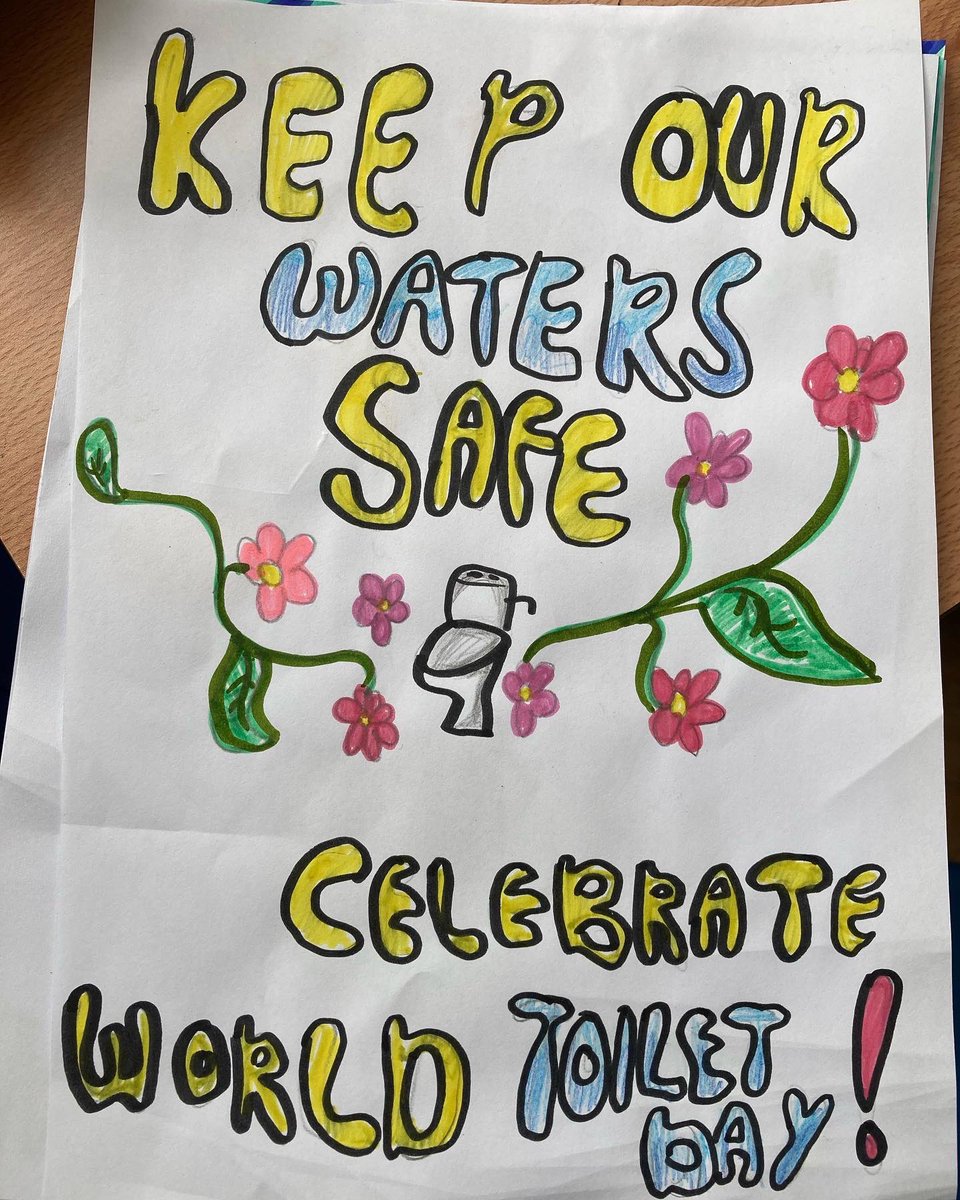 KEEP OUR
WATERS
SAFE
CELEBRATE
WORLD TOILET
DAY!